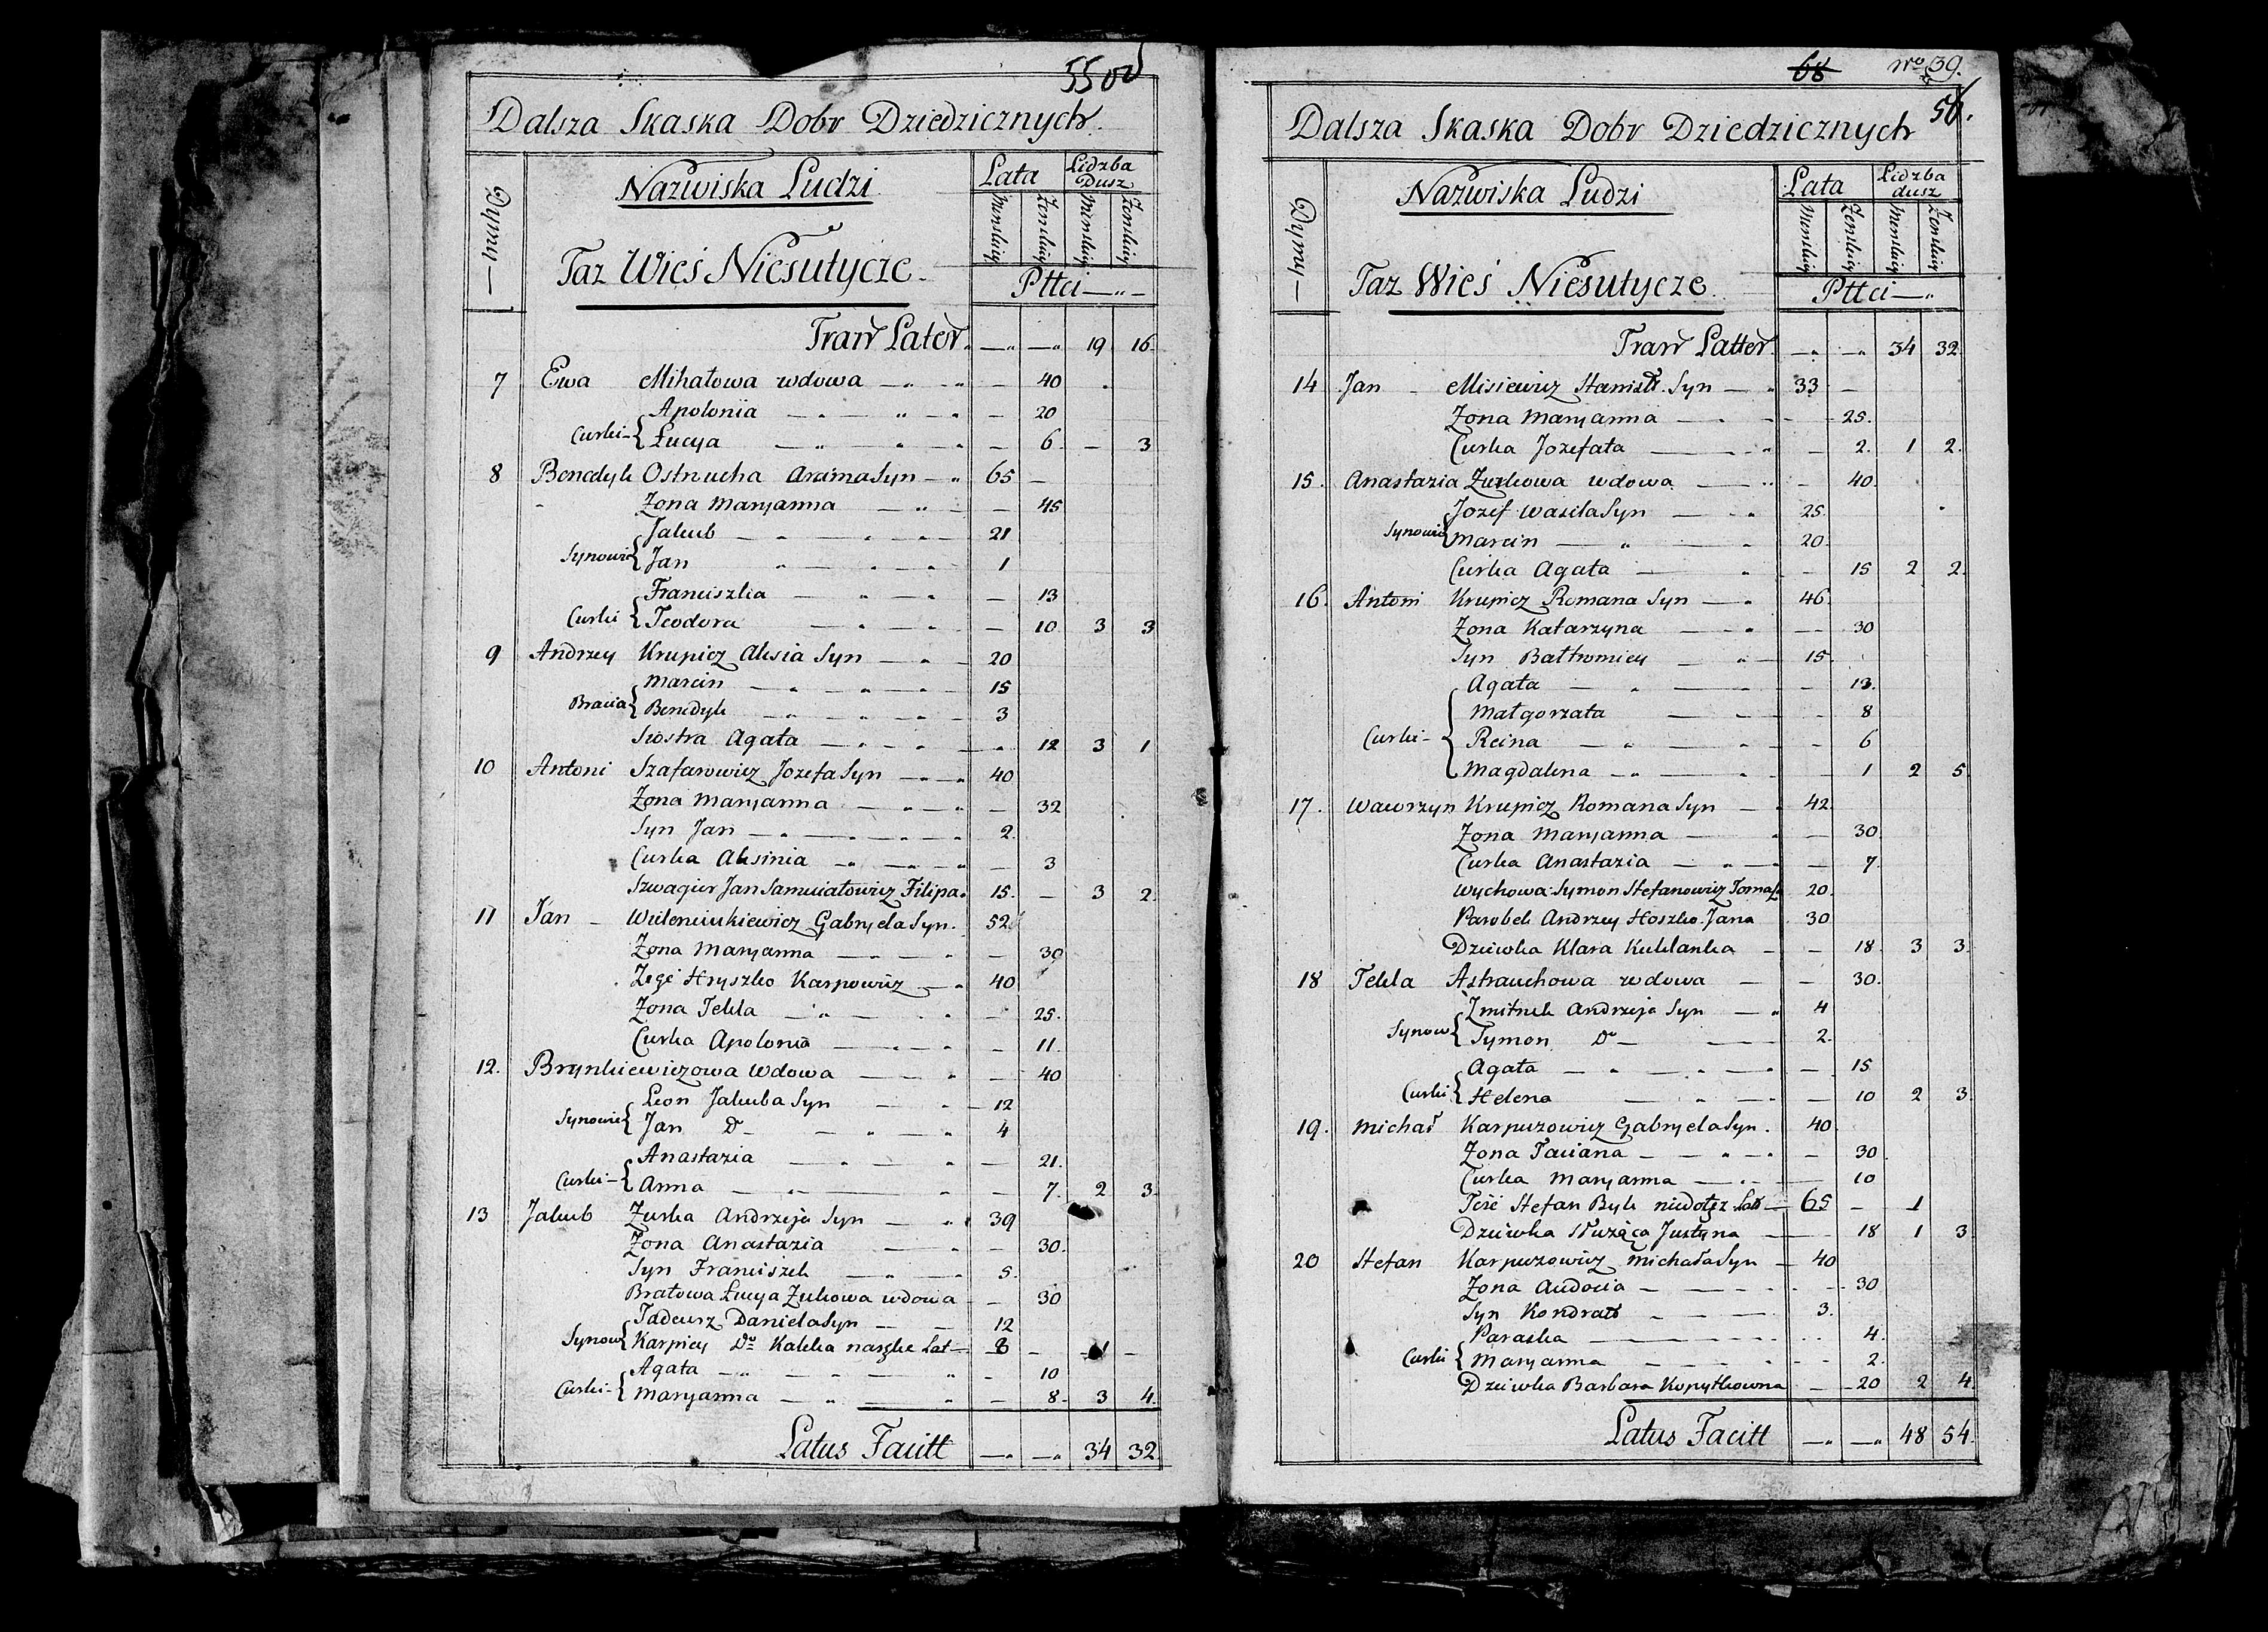 55 od
Dalsza Skaska Dobr Dziedzicznych
Dymy
Nazwiska Ludzi
Lata
Lidzba Dusz
Menskiey
Zenskiey
Menskiey
Zenskiey
Taz Wieś Niesutycze
Pttci
Tran Later 19 16
7 Ewa Mihałowa wdowa 40
Curki Apolonia 20
Łucya 6 3
8 Benedyk Ostrucha Syn 65
Zona Maryanna 45
Synowie Jakub 21
Jan 1
Curki Franciszka 13
Teodora 10 3 3
9 Andrzey Krupicz Alesia Syn 20
Bracia Marcin 15
Benedyk 3
Siostra Agata 12 3 1
10 Antoni Szafarowicz Jozefa Syn 40
Zona Maryanna 32
Syn Jan 2
Curka Aksinia 3
Szwagier Jan Samuiałowicz Filipa 15 3 2
11 Jan Gabryela Syn 52
Zona Maryanna 30
Zięć Hryszko Karpowicz 40
Zona Tekla 25
Curka Apolonia 11
12 Brynkiewiczowa Wdowa 40
Synowie Leon Jakuba Syn 12
Jan Do 4
Curki Anastazia 21
Anna 7 2 3
13 Jakub Zurka Andrzeja Syn 39
Zona Anastazia 30
Syn Franciszek 5
Bratowa Łucya Zukowa wdowa 30
Synow Tadeusz Daniela Syn 12
Karpiey Do Kaleka Lat 8 1
Curki Agata 10
Maryanna 8 3 4
Latus Facitt 34 32
68 No 39.
56.
Dalsza Skaska Dobr Dziedzicznych
Dymy
Nazwiska Ludzi
Lata
Lidzba dusz
Menskiey
Zenskiey
Menskiey
Zenskiey
Taz Wieś Niesutycze
Pttci
Tran Latter 34 32
14 Jan Misiewicz Stanisł. Syn 33
Zona Maryanna 25
Curka Jozefata 2 1 2
15 Anastazia Zurkowa wdowa 40
Synowie Jozef Wasila Syn 25
Marcin 20
Curka Agata 15 2 2
16. Antoni Krupicz Romana Syn 46
Zona Katarzyna 30
Syn Bałtromiey 15
Curki Agata 13
Małgorzata 8
Reina 6
Magdalena 1 2 5
17. Wawrzyn Krupicz Romana Syn 42
Zona Maryanna 30
Curka Anastazia 7
Wychowa: Symon Stefanowicz Tomasz 20
Parobek Andrzey Hoszko Jana 30
Dziewka Klara Kuklanka 18 3 3
18 Tekla Astrauchowa wdowa 30
Synow Zmitruk Andrzeja Syn 4
Symon Do 2
Curki Agata 15
Helena 10 2 3
19. Michał Karpuzowicz Gabryela Syn. 40
Zona Taciana 30
Curka Maryanna 10
Teść Stefan Byk Lat 65 1
Dziewka Służąca Justyna 18 1 3
20 Stefan Karpuzowicz Michała Syn 40
Zona Audocia 30
Syn Kondrat 3
Curki Paraska 4
Maryanna 2
Dziewka Barbara Kopytkowna 20 2 4
Latus Facitt 48 54